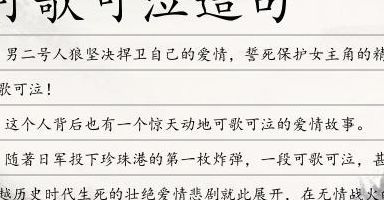 可歌可泣造句
男二号人狼坚决捍卫自己的爱情，誓死保护女主角的精
歌可泣！
这个人背后也有一个惊天动地可歌可泣的爱情故事。
随著日军投下珍珠港的第一枚炸弹，一段可歌可泣，甚
越历史时代生死的壮绝爱情悲剧就此展开，在无情战火的